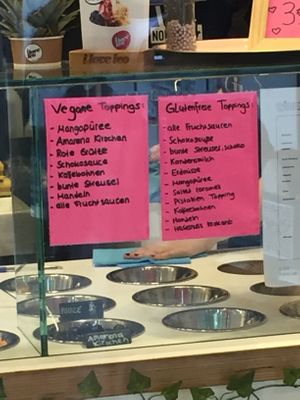 I love leo
Vegane Toppings:
- Mangopüree
- Amarena Kirschen
- Rote Grütze
- Schokosauce
- Kaffebohnen
- bunte Streusel
- Mandeln
- alle Fruchtsaucen
Glutenfreie Toppings:
- alle Fruchtsaucen
- Schokosauce
- bunte Streusel, Schoko
- Kondensmilch
- Erdnüsse
- Mangopüree
- Salted Caramel
- Pistazien Topping
- Kaffeebohnen
- Mandeln
- Haselnuss Krokant
3
Amarena
Kirschen